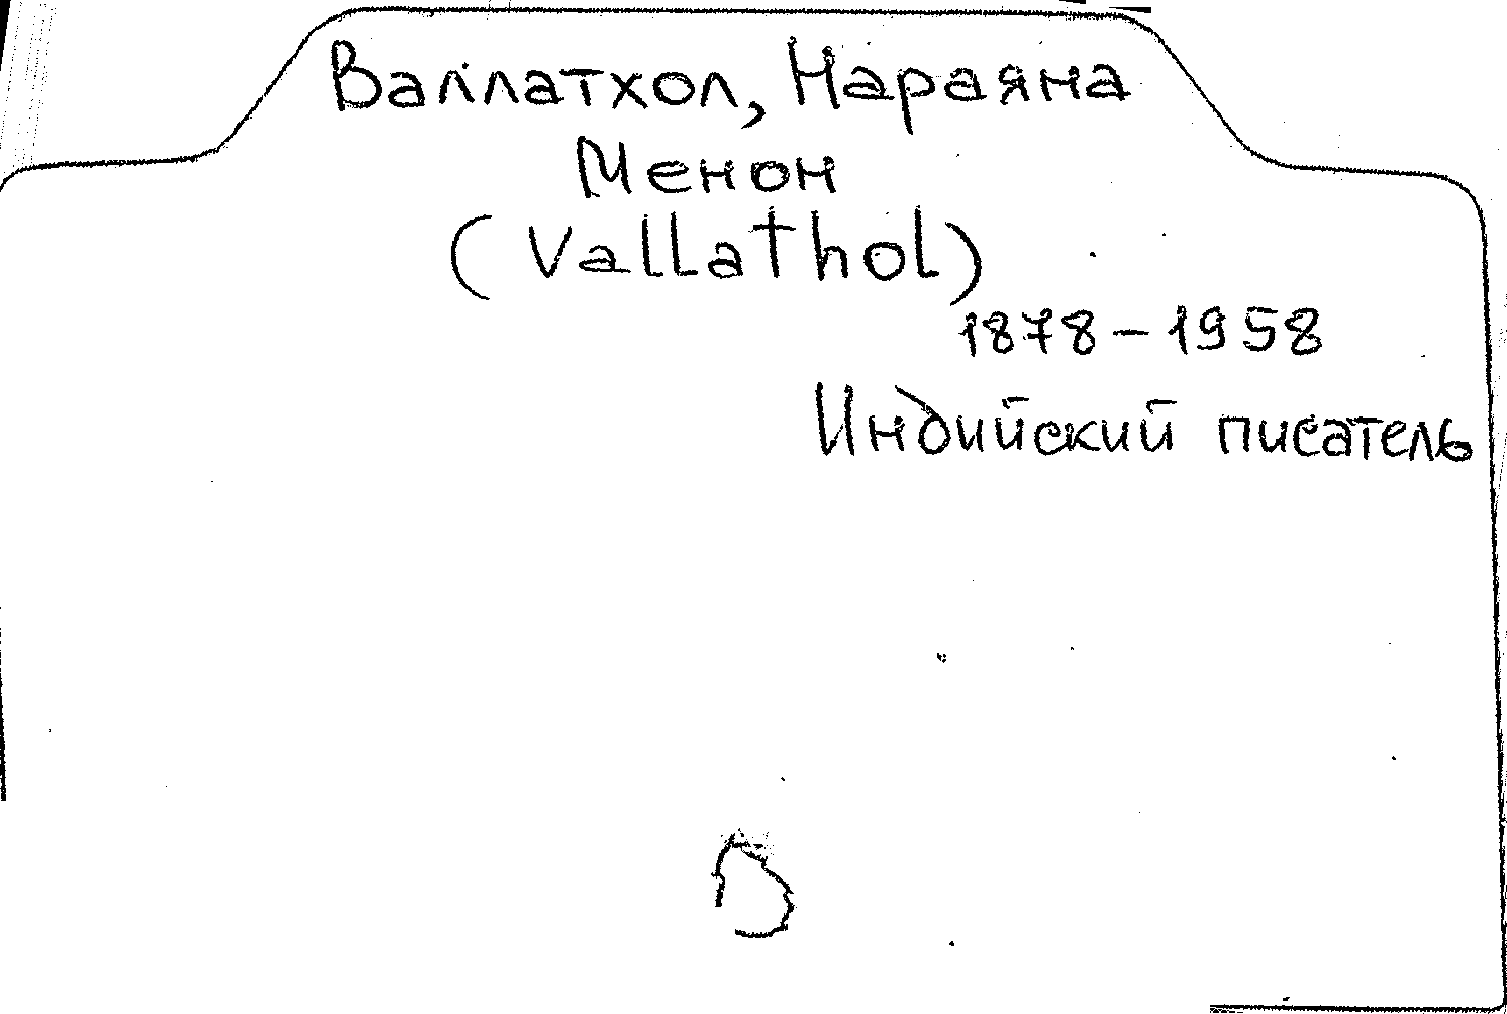 Валлатхол, Нараяна
Менон
(Vallathol)
1878-1958
Индийский писатель